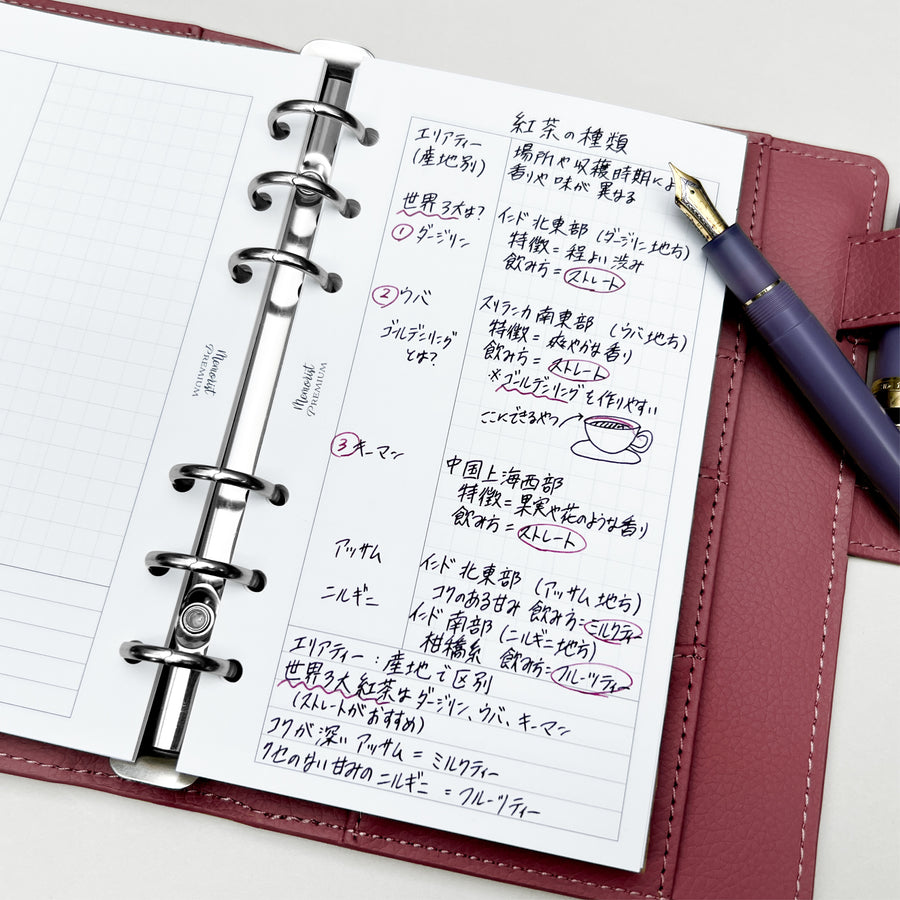 紅茶の種類
エリアティー
(産地別)
場所や収穫時期によ
香りや味が異なる
世界3大は?
① ダージリン
インド北東部 (ダージリン地方)
特徴=程よい渋み
飲み方=ストレート
② ウバ
ゴールデンリング
とは?
スリランカ南東部 (ウバ地方)
特徴=爽やかな香り
飲み方=ストレート
※ゴールデンリングを作りやすい
ここにできるやつ
③ キーマン
中国上海西部
特徴=果実や花のような香り
飲み方=ストレート
アッサム
インド北東部 (アッサム地方)
コクのある甘み 飲み方=ミルクティー
ニルギニ
インド南部 (ニルギニ地方)
柑橘系 飲み方=フルーツティー
エリアティー:産地で区別
世界3大紅茶はダージリン、ウバ、キーマン
(ストレートがおすすめ)
コクが深いアッサム=ミルクティー
クセのない甘みのニルギニ=フルーツティー
Memorist
PREMIUM
Memorist
PREMIUM